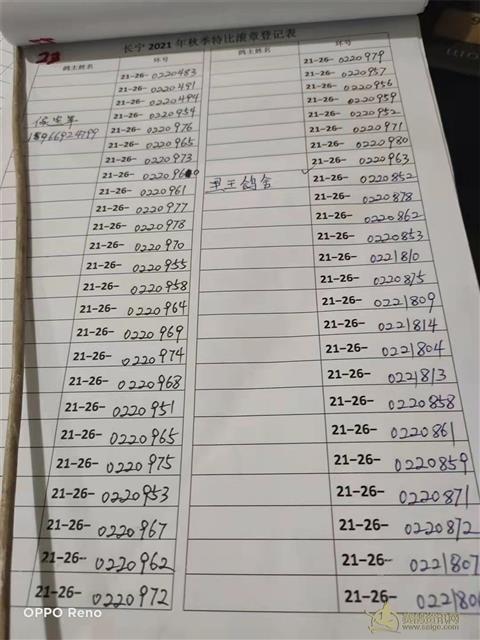 长宁 2021 年秋季特比滚章登记表
鸽主姓名 环号 鸽主姓名 环号
21-26-0220483
21-26-0220491
21-26-0220494
21-26-0220954
21-26-0220976
21-26-0220965
21-26-0220973
21-26-0220961
21-26-0220977
21-26-0220978
21-26-0220970
21-26-0220955
21-26-0220958
21-26-0220964
21-26-0220969
21-26-0220974
21-26-0220968
21-26-0220951
21-26-0220965
21-26-0220975
21-26-0220953
21-26-0220967
21-26-0220962
21-26-0220972
21-26-0220979
21-26-0220957
21-26-0220956
21-26-0220959
21-26-0220952
21-26-0220971
21-26-0220980
21-26-0220963
王鸽舍 21-26-0220852
21-26-0220878
21-26-0220862
21-26-0220853
21-26-0221810
21-26-0220875
21-26-0221809
21-26-0221814
21-26-0221804
21-26-0221813
21-26-0220858
21-26-0220861
21-26-0220859
21-26-0220871
21-26-0220872
21-26-0221807
21-26-
OPPO Reno
www.saige.com